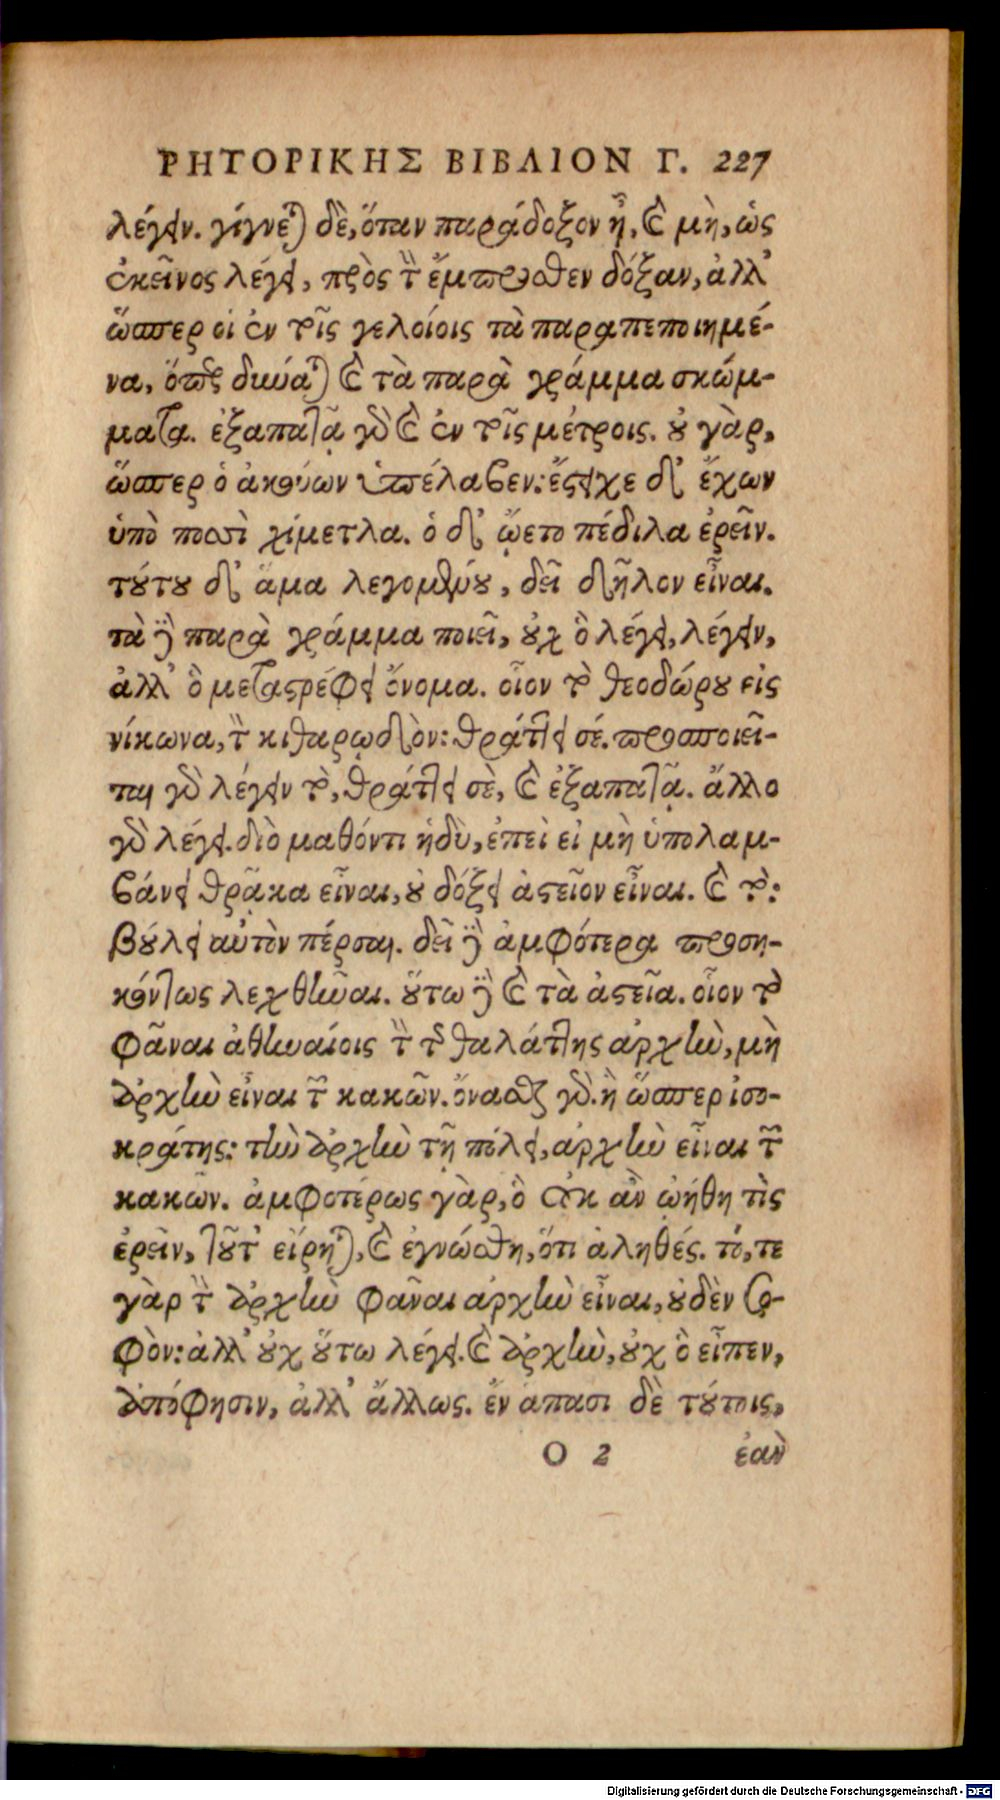 ΡΗΤΟΡΙΚΗΣ ΒΙΒΛΙΟΝ Γ. 227
λέγειν. γίγνεται δὲ, ὅταν παράδοξον ᾖ, καὶ μὴ, ὡς
ἐκεῖνος λέγει, πρὸς τὴν ἔμπροσθεν δόξαν, ἀλλ'
ὥσπερ οἱ ἐν τοῖς γελοίοις τὰ παραπεποιημέ-
να, ὅπερ δύναται καὶ τὰ παρὰ γράμμα σκώμ-
ματα. ἐξαπατᾷ γὰρ καὶ ἐν τοῖς μέτροις. οὐ γὰρ,
ὥσπερ ὁ ἀκούων ὑπέλαβεν: ἔστειχε δ' ἔχων
ὑπὸ ποσὶ χίμετλα. ὁ δ' ᾤετο πέδιλα ἐρεῖν.
τούτου δ' ἅμα λεγομένου, δεῖ δῆλον εἶναι.
τὰ δὲ παρὰ γράμμα ποιεῖ, οὐχ ὃ λέγει, λέγειν,
ἀλλ' ὃ μεταστρέφει ὄνομα. οἷον τὸ θεοδώρου εἰς
νίκωνα, τὸν κιθαρῳδὸν: θράττει σέ. προσποιεῖ-
ται γὰρ λέγειν τὸ, θράττει σὲ, καὶ ἐξαπατᾷ. ἄλλο
γὰρ λέγει. διὸ μαθόντι ἡδὺ, ἐπεὶ εἰ μὴ ὑπολαμ-
βάνει θρᾷκα εἶναι, οὐ δόξει ἀστεῖον εἶναι. καὶ τὸ:
βούλει αὐτὸν πέρσαι. δεῖ δὲ ἀμφότερα προση-
κόντως λεχθῆναι. οὕτω δὲ καὶ τὰ ἀστεῖα. οἷον τὸ
φᾶναι ἀθηναίοις τὴν τῆς θαλάττης ἀρχὴν, μὴ
ἀρχὴν εἶναι τῶν κακῶν. ὄνασθαι γάρ. ἢ ὥσπερ ἰσο-
κράτης: τὴν ἀρχὴν τῇ πόλει, ἀρχὴν εἶναι τῶν
κακῶν. ἀμφοτέρως γὰρ, ὃ οὐκ ἂν ᾠήθη τὶς
ἐρεῖν, τοῦτ' εἴρηται, καὶ ἐγνώσθη, ὅτι ἀληθές. τό, τε
γὰρ τὴν ἀρχὴν φᾶναι ἀρχὴν εἶναι, οὐδὲν σο-
φὸν: ἀλλ' οὐχ οὕτω λέγει. καὶ ἀρχὴν, οὐχ ὃ εἶπεν,
ἀπόφησιν, ἀλλ' ἄλλως. ἔν απασι δὲ τούτοις,
O 2 ἐὰν
Digitalisierung gefördert durch die Deutsche Forschungsgemeinschaft - DFG